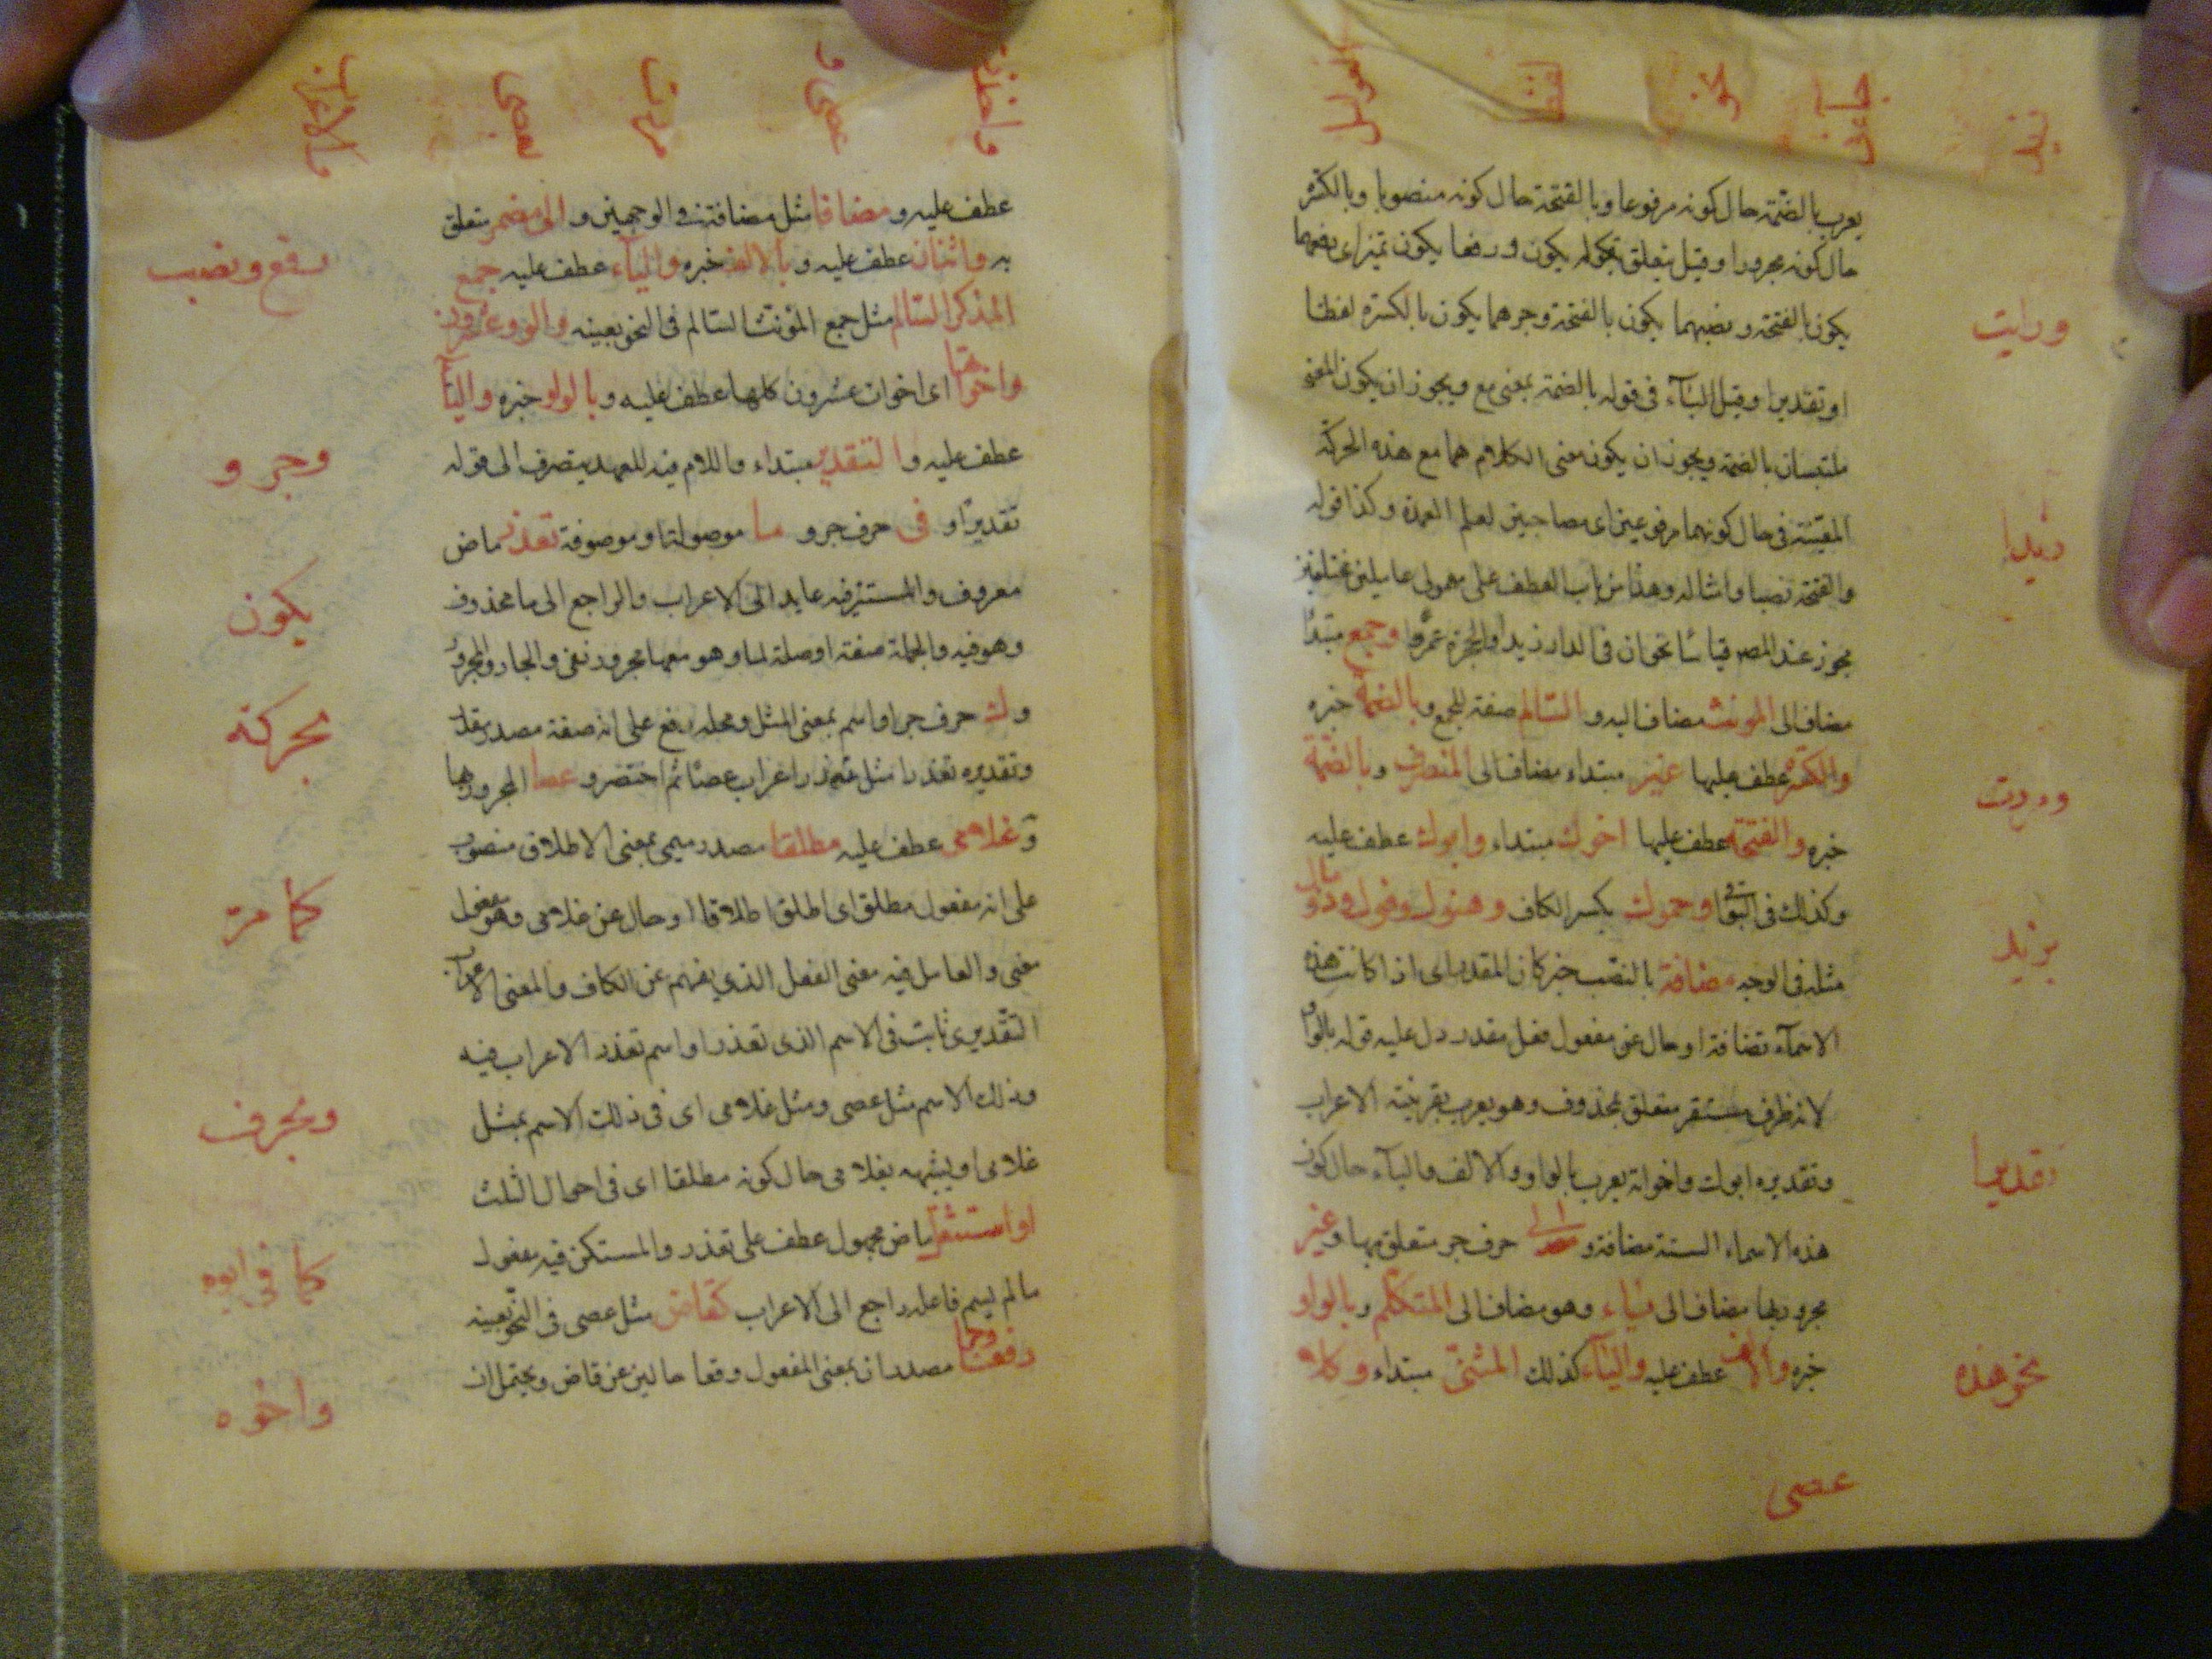 يعرب بالضمة حال كونه مرفوعا وبالفتحة حال كونه منصوبا وبالكسرة
حال كونه مجرورا وقيل يتعلق بكوله يكون ورفعا يكون تميزا اى رفعهما
يكون بالفتحة ونصبهما يكون بالفتحة وجرهما يكون بالكسرة لفظا
او تقديرا وقيل الباء فى قوله بالضمة بمعنى مع ويجوز ان يكون المعنى
ملتبسان بالضمة ويجوز ان يكون معنى الكلام هما مع هذه الحركة
المعينة فى حال كونهما مرفوعين اى مصاحبين لعلم العمدة وكذا قوله
والفتحة نصبا وامثاله وهذا من باب العطف على معمولى عاملين مختلفين
يجوز عند المصر قياسا نحو ان فى الدار زيدا والحجرة عمرا وجمع مبتدأ
مضاف الى المونث مضاف اليه والسالم صفة للجمع وبالضمة خبره
والكسرة عطف عليها غير مبتداء مضاف الى المنصرف وبالضمة
خبره والفتحة عطف عليها اخوك مبتداء وابوك عطف عليه
وكذلك فى البواقى وحموك بكسر الكاف وهنوك وفوك وذو مال
مثله فى الوجه مضافة بالنصب خبر كان المقدر اى اذا كانت هذه
الاسماء مضافة او حال عن مفعول فعل مقدر دل عليه قوله بالواو
لانه ظرف مستقر متعلق بمحذوف وهو يعرب بقرينة الاعراب
وتقديره ابوك واخواته يعرب بالواو والالف والياء حال كون
هذه الاسماء الستة مضافة و الى حرف جر متعلق بها وغير
مجرور بها مضاف الى ياء وهو مضاف الى المتكلم وبالواو
خبره والالف عطف عليه والياء كذلك المثنى مبتداء وكلا
زيد
جاءنى
نحو
لفظا
العوامل
ورايت
زيدا
ومررت
بزيد
تقديرا
نحو هذه
عصى
عطف عليه ومضافا مثل مضافة فى الوجهين والى مضمر متعلق
به واثنان عطف عليه وبالالف خبره والياء عطف عليه جمع
المذكر السالم مثل جمع المؤنث السالم فى النحو بعينه والوو عشرون
واخواتها اى اخوات عشرون كلها عطف عليه وبالواو خبره والياء
عطف عليه والتقدير مبتداء واللام فيه للعهد يتصرف الى قوله
تقديرا و فى حرف جر و ما موصولة او موصوفة تعذر ماض
معروف والمستتر فيه عايد الى الاعراب والراجع الى ما محذوف
وهو فيه والجملة صفة او صلة لما وهو معها مجرور بفى والجار والمجرور
وك حرف جر او اسم بمعنى المثل ومحله رفع على انه صفة مصدر مقدر
وتقديره تعذرا مثل تعذر اعراب عصا ثم اختصر و عصا المجرور بها
وغلامى عطف عليه مطلقا مصدر ميمى بمعنى الاطلاق منصوب
على انه مفعول مطلق اى اطلق اطلاقا او حال عن غلامى وهو مفعول
معنى والعامل فيه معنى الفعل الذى يفهم عن الكاف والمعنى الاعراب
التقديرى ثابت فى الاسم الذى تعذر او اسم تعذر الاعراب فيه
وذلك الاسم مثل عصى ومثل غلامى اى فى ذلك الاسم بمثل
غلامى او يشبهه بغلامى حال كونه مطلقا اى فى احوال الثلث
او استثقل ماض مجهول عطف على تعذر والمستكن فيه مفعول
ما لم يسم فاعله راجع الى الاعراب كقاض مثل عصى فى النحو بعينه
رفعا وجرا مصدران بمعنى المفعول وقعا حالين عن قاض ويحتمل ان
عصى و
مررت
بعصى
رفع ونصب
وجر و
يكون
بحركة
كما مر
وبحرف
كما فى ابوه
واخوه